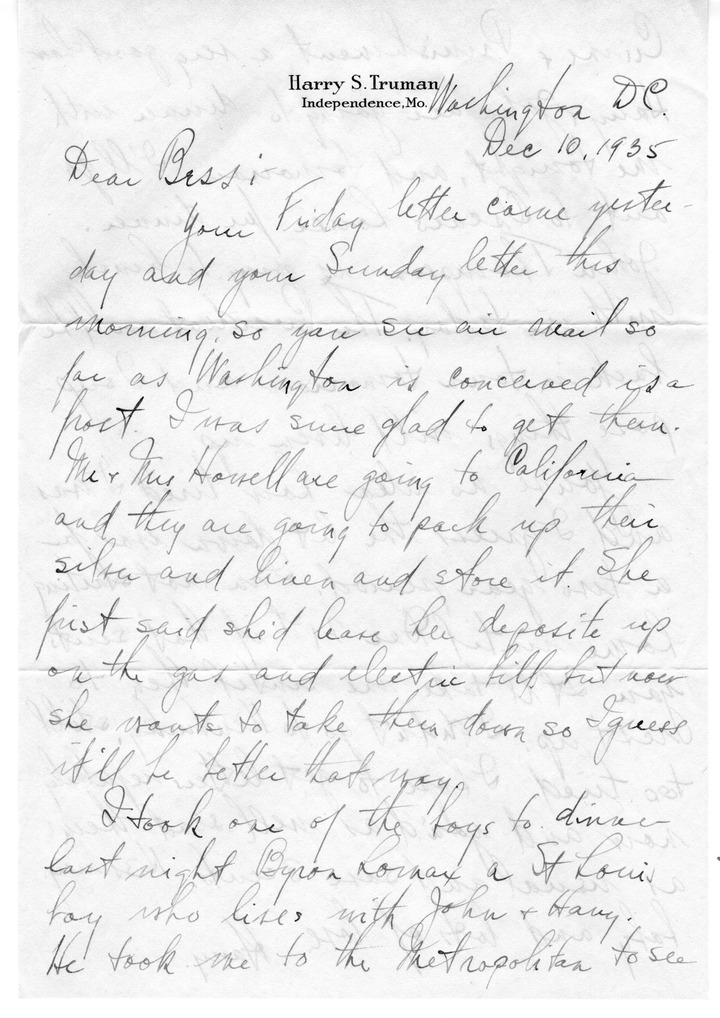 Harry S. Truman
Independence, Mo.
Washington D.C.
Dec 10, 1935
Dear Bess:
Your Friday letter came yester-
day and your Sunday letter this
morning, so you see air mail so
far as Washington is concerned is a
frost. I was sure glad to get them.
Mr & Mrs Howell are going to California
and they are going to pack up their
silver and linen and store it. She
first said she'd leave her deposite up
on the gas and electric bill but now
she wants to take them down so I guess
it'll be better that way.
I took one of the boys to dinner
last night Byron Lomax a St Louis
boy who lives with John & Harry.
He took me to the Metropolitan to see